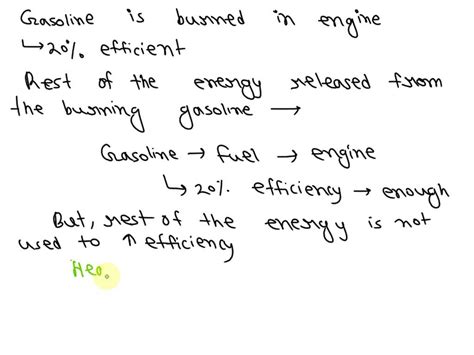 Gasoline is burned in engine
↳ 20% efficient
Rest of the energy released from
the burning gasoline →
Gasoline → fuel → engine
↳ 20% efficiency → enough
But, rest of the energy is not
used to ↑ efficiency
Hea